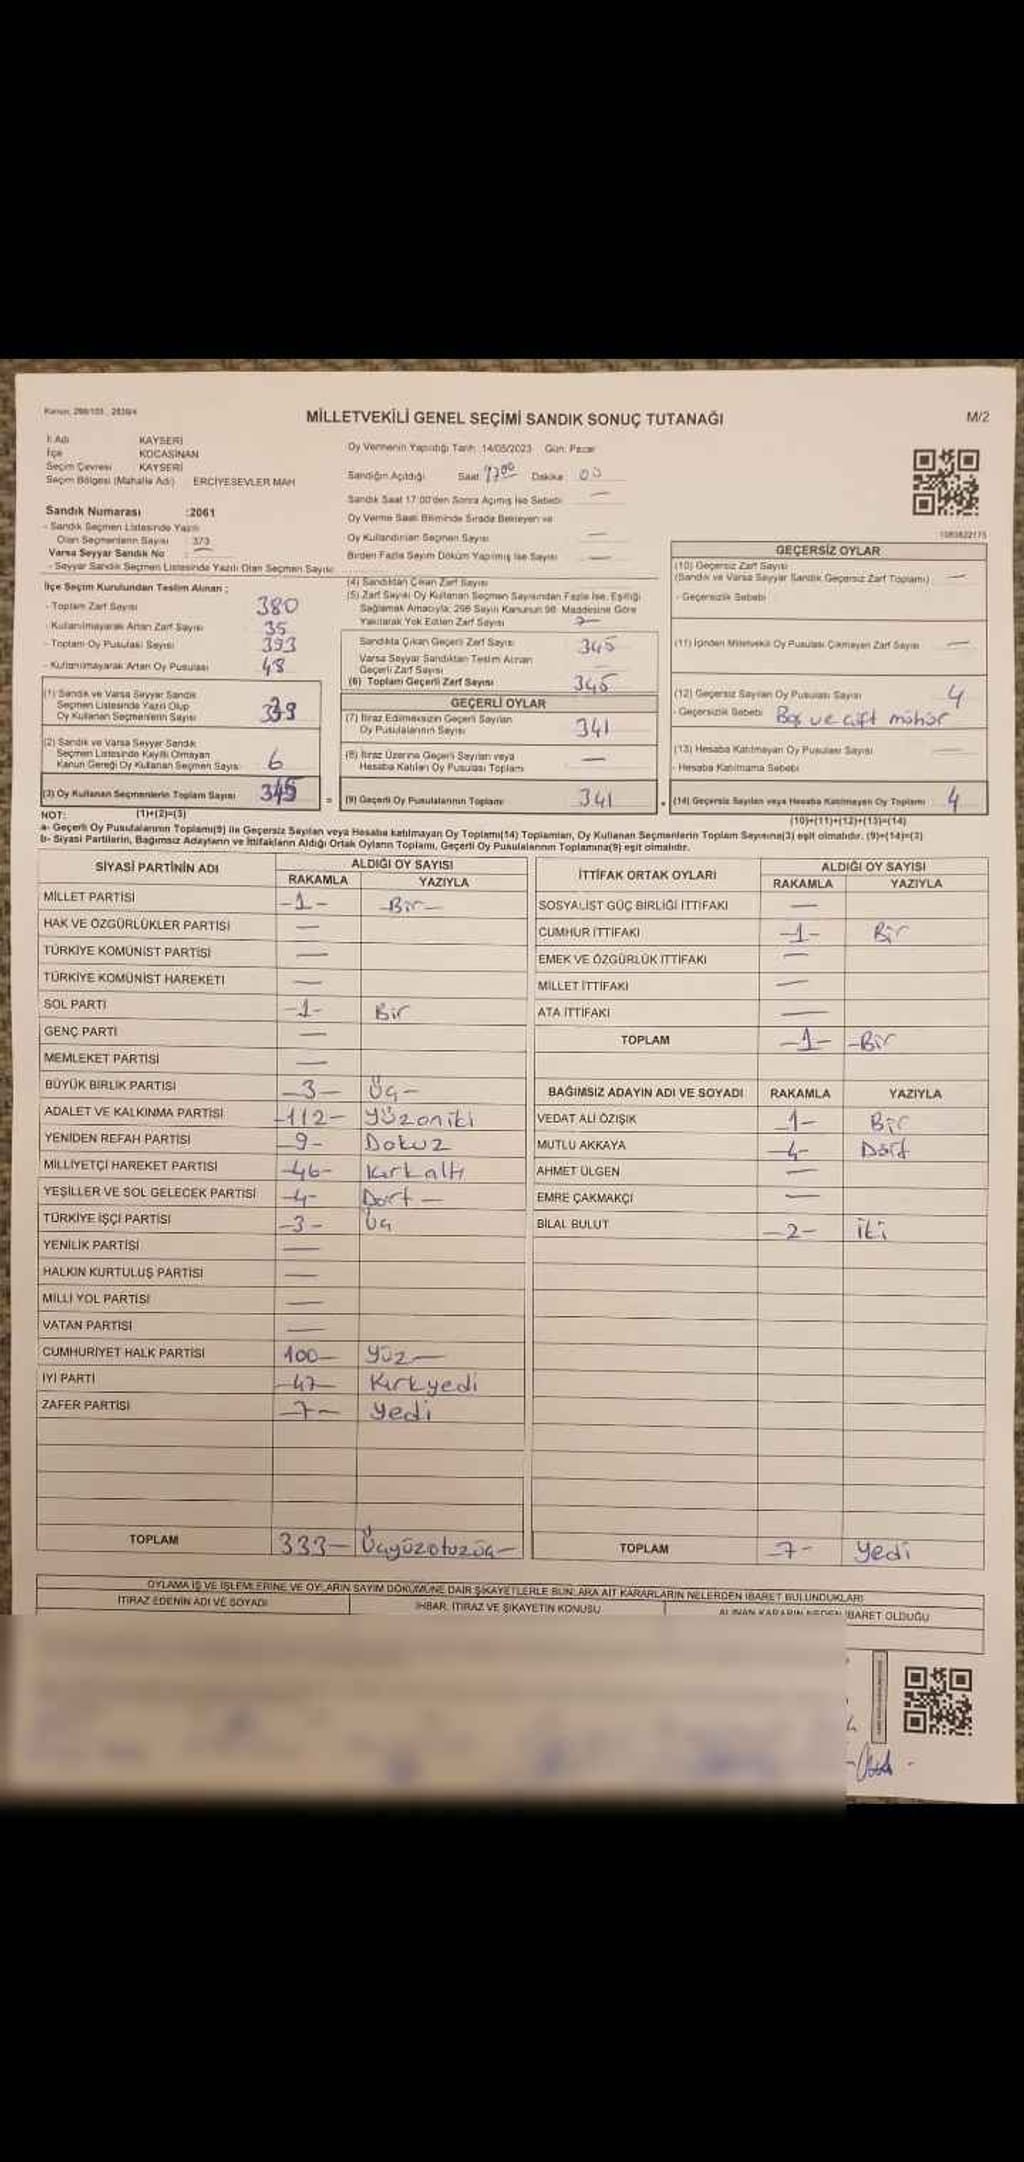 Kanun: 298/105 , 2839/4
MİLLETVEKİLİ GENEL SEÇİMİ SANDIK SONUÇ TUTANAĞI
M/2
İl Adı KAYSERİ
İlçe KOCASİNAN
Seçim Çevresi KAYSERİ
Seçim Bölgesi (Mahalle Adı) ERCİYESEVLER MAH
Sandık Numarası :2061
- Sandık Seçmen Listesinde Yazılı
Olan Seçmenlerin Sayısı : 373
Varsa Seyyar Sandık No : —
- Seyyar Sandık Seçmen Listesinde Yazılı Olan Seçmen Sayısı:
Oy Vermenin Yapıldığı Tarih: 14/05/2023 Gün: Pazar
Sandığın Açıldığı Saat 17:00 Dakika : 00
Sandık Saat 17:00'den Sonra Açılmış İse Sebebi: —
Oy Verme Saati Bitiminde Sırada Bekleyen ve
Oy Kullandırılan Seçmen Sayısı : —
Birden Fazla Sayım Döküm Yapılmış İse Sayısı : —
1083822175
İlçe Seçim Kurulundan Teslim Alınan :
- Toplam Zarf Sayısı : 380
- Kullanılmayarak Artan Zarf Sayısı : 35
- Toplam Oy Pusulası Sayısı : 393
- Kullanılmayarak Artan Oy Pusulası : 48
(1) Sandık ve Varsa Seyyar Sandık
Seçmen Listesinde Yazılı Olup
Oy Kullanan Seçmenlerin Sayısı : 339
(2) Sandık ve Varsa Seyyar Sandık
Seçmen Listesinde Kayıtlı Olmayan
Kanun Gereği Oy Kullanan Seçmen Sayısı: 6
(3) Oy Kullanan Seçmenlerin Toplam Sayısı: 345
(4) Sandıktan Çıkan Zarf Sayısı
(5) Zarf Sayısı Oy Kullanan Seçmen Sayısından Fazla İse, Eşitliği
Sağlamak Amacıyla, 298 Sayılı Kanunun 98. Maddesine Göre
Yakılarak Yok Edilen Zarf Sayısı
Sandıkta Çıkan Geçerli Zarf Sayısı: 345
Varsa Seyyar Sandıktan Teslim Alınan
Geçerli Zarf Sayısı : —
(6) Toplam Geçerli Zarf Sayısı : 345
GEÇERLİ OYLAR
(7) İtiraz Edilmeksizin Geçerli Sayılan
Oy Pusulalarının Sayısı : 341
(8) İtiraz Üzerine Geçerli Sayılan veya
Hesaba Katılan Oy Pusulası Toplamı : —
= (9) Geçerli Oy Pusulalarının Toplamı: 341
GEÇERSİZ OYLAR
(10) Geçersiz Zarf Sayısı
(Sandık ve Varsa Seyyar Sandık Geçersiz Zarf Toplamı) : —
- Geçersizlik Sebebi :
(11) İçinden Milletvekili Oy Pusulası Çıkmayan Zarf Sayısı : —
(12) Geçersiz Sayılan Oy Pusulası Sayısı : 4
- Geçersizlik Sebebi : Boş ve çift mühür
(13) Hesaba Katılmayan Oy Pusulası Sayısı : —
- Hesaba Katılmama Sebebi :
+ (14) Geçersiz Sayılan veya Hesaba Katılmayan Oy Toplamı : 4
NOT: (1)+(2)=(3)
(10)+(11)+(12)+(13)=(14)
a- Geçerli Oy Pusulalarının Toplamı(9) ile Geçersiz Sayılan veya Hesaba katılmayan Oy Toplamı(14) Toplamları, Oy Kullanan Seçmenlerin Toplam Sayısına(3) eşit olmalıdır. (9)+(14)=(3)
b- Siyasi Partilerin, Bağımsız Adayların ve İttifakların Aldığı Ortak Oyların Toplamı, Geçerli Oy Pusulalarının Toplamına(9) eşit olmalıdır.
SİYASİ PARTİNİN ADI ALDIĞI OY SAYISI
RAKAMLA YAZIYLA
MİLLET PARTİSİ -1- -Bir-
HAK VE ÖZGÜRLÜKLER PARTİSİ —
TÜRKİYE KOMÜNİST PARTİSİ —
TÜRKİYE KOMÜNİST HAREKETİ —
SOL PARTİ -1- Bir
GENÇ PARTİ —
MEMLEKET PARTİSİ —
BÜYÜK BİRLİK PARTİSİ -3- Üç-
ADALET VE KALKINMA PARTİSİ -112- yüzoniki
YENİDEN REFAH PARTİSİ -9- Dokuz
MİLLİYETÇİ HAREKET PARTİSİ -46- Kırkaltı
YEŞİLLER VE SOL GELECEK PARTİSİ -4- Dört —
TÜRKİYE İŞÇİ PARTİSİ -3- Üç
YENİLİK PARTİSİ —
HALKIN KURTULUŞ PARTİSİ —
MİLLİ YOL PARTİSİ —
VATAN PARTİSİ —
CUMHURİYET HALK PARTİSİ 100— yüz—
İYİ PARTİ -47- Kırkyedi
ZAFER PARTİSİ -7- yedi
TOPLAM 333- Üçyüzotuzüç-
İTTİFAK ORTAK OYLARI ALDIĞI OY SAYISI
RAKAMLA YAZIYLA
SOSYALİST GÜÇ BİRLİĞİ İTTİFAKI —
CUMHUR İTTİFAKI -1- Bir
EMEK VE ÖZGÜRLÜK İTTİFAKI —
MİLLET İTTİFAKI —
ATA İTTİFAKI —
TOPLAM -1- -Bir
BAĞIMSIZ ADAYIN ADI VE SOYADI RAKAMLA YAZIYLA
VEDAT ALİ ÖZIŞIK -1- Bir
MUTLU AKKAYA -4- Dört
AHMET ÜLGEN —
EMRE ÇAKMAKÇI —
BİLAL BULUT -2- İki
TOPLAM -7- yedi
OYLAMA İŞ VE İŞLEMLERİNE VE OYLARIN SAYIM DÖKÜMÜNE DAİR ŞİKAYETLERLE BUNLARA AİT KARARLARIN NELERDEN İBARET BULUNDUKLARI
İTİRAZ EDENİN ADI VE SOYADI İHBAR, İTİRAZ VE ŞİKAYETİN KONUSU ALINAN KARARIN NEDEN İBARET OLDUĞU